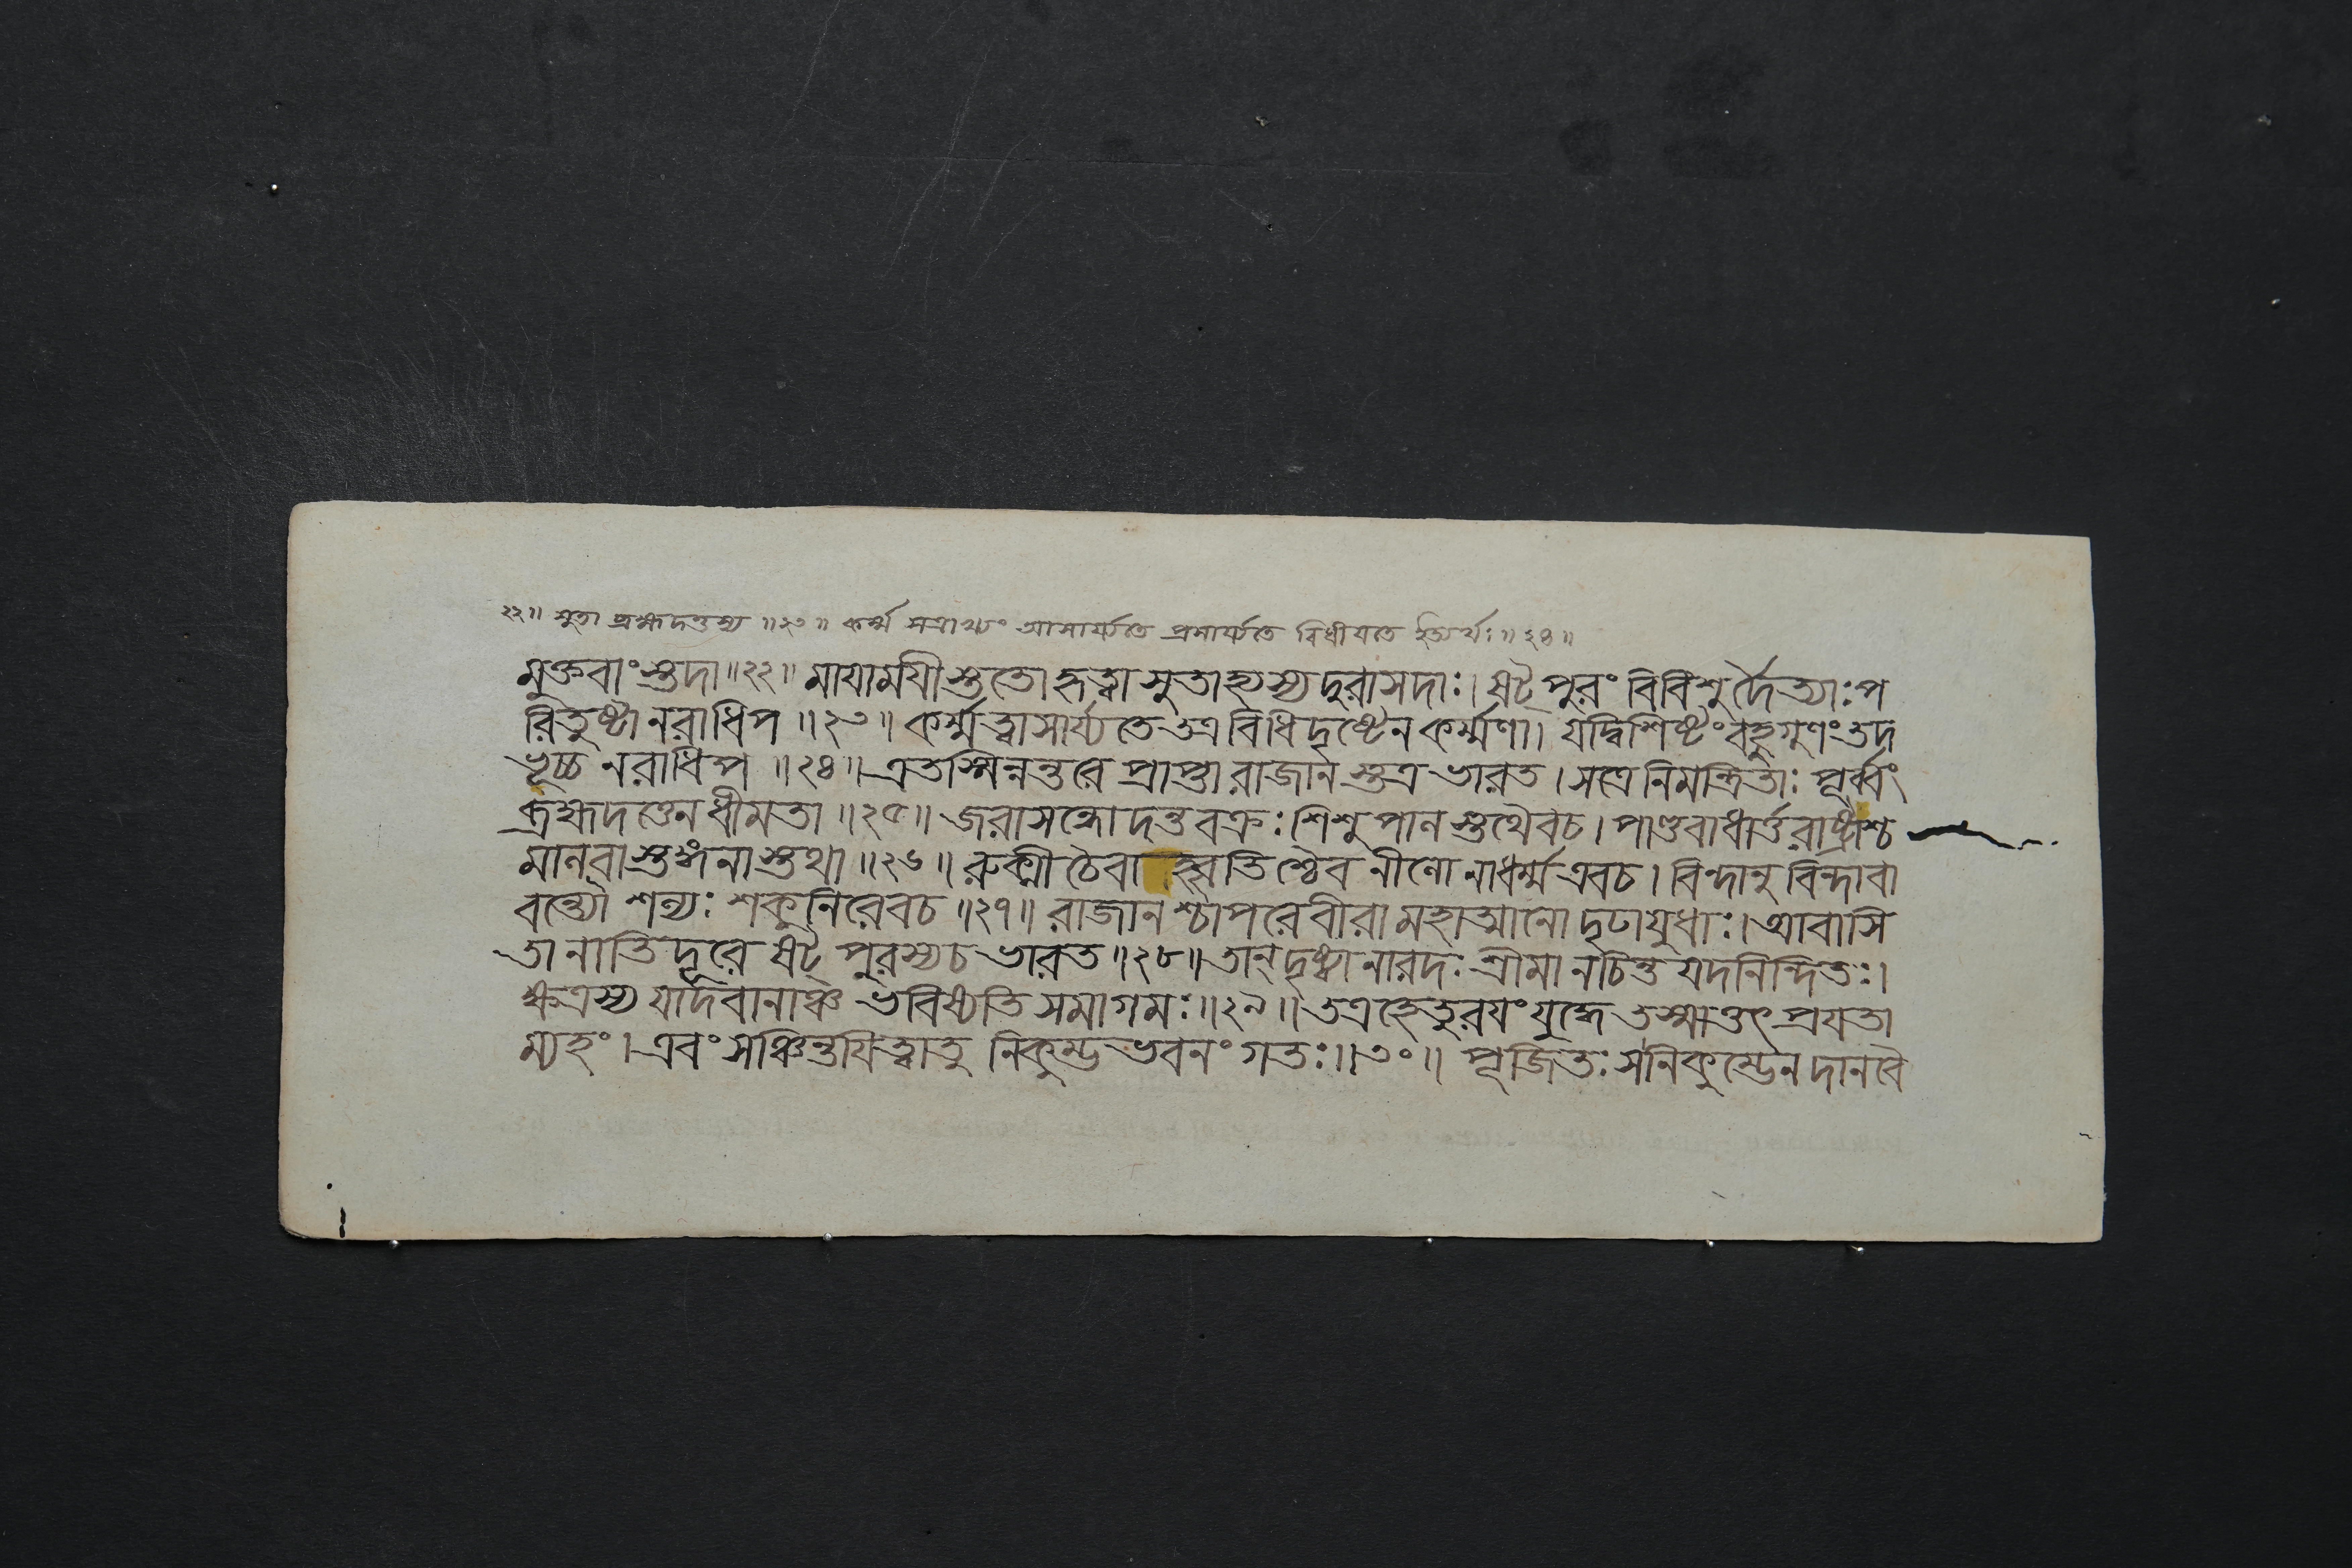 ২২॥ সুতা ব্রহ্মদত্তস্য ॥২৩॥ কর্ম্ম সত্রাখ্যং আসার্য্যতে প্রসার্য্যতে বিধীয়তে ইত্যর্থঃ॥২৪॥
মুক্তবাংস্তদা॥২২॥ মায়াময়ীস্ততো হৃত্বা সুতাহ্যস্য দুরাসদাঃ। ষট্পুরং বিবিশু র্দৈত্যাঃ প
রিতুষ্টা নরাধিপ ॥২৩॥ কর্ম্মত্বাসার্য্যতে তত্র বিধিদৃষ্টেন কর্ম্মণা। যদ্বিশিষ্টং বহুগুণং তদ
ভূচ্চ নরাধিপ ॥২৪॥ এতস্মিন্নন্তরে প্রাপ্তা রাজান স্তত্র ভারত। সত্রে নিমন্ত্রিতাঃ পূর্ব্বং
ব্রহ্মদত্তেন ধীমতা ॥২৫॥ জরাসন্ধো দন্তবক্রঃ শিশুপাল স্তথৈবচ। পাণ্ডবাধার্ত্তরাষ্ট্রাশ্চ
মালবাস্তঙ্গনাস্তথা ॥২৬॥ রুক্মী চৈবাহ্বৃতিশ্চৈব নীলো নাধর্ম্ম এবচ। বিন্দানুবিন্দাবা
বন্ত্যৌ শল্যঃ শকুনিরেবচ ॥২৭॥ রাজানশ্চাপরে বীরা মহাত্মানো দৃঢায়ুধাঃ। আবাসি
তা নাতিদূরে ষট্ পুরস্যচ ভারত ॥২৮॥ তান্ দৃষ্ট্বা নারদঃ শ্রীমা নচিন্ত যদনিন্দিতঃ।
ক্ষত্রস্য যাদবানাঞ্চ ভবিষ্যতি সমাগমঃ॥২৯॥ তত্রহেতুরয়ং যুদ্ধে তস্মাত্তৎ প্রযতা
ম্যহং। এবং সঞ্চিন্তয়িত্বাতু নিকুম্ভ ভবনং গতঃ॥৩০॥ পূজিতঃ সনিকুম্ভেন দানবৈ